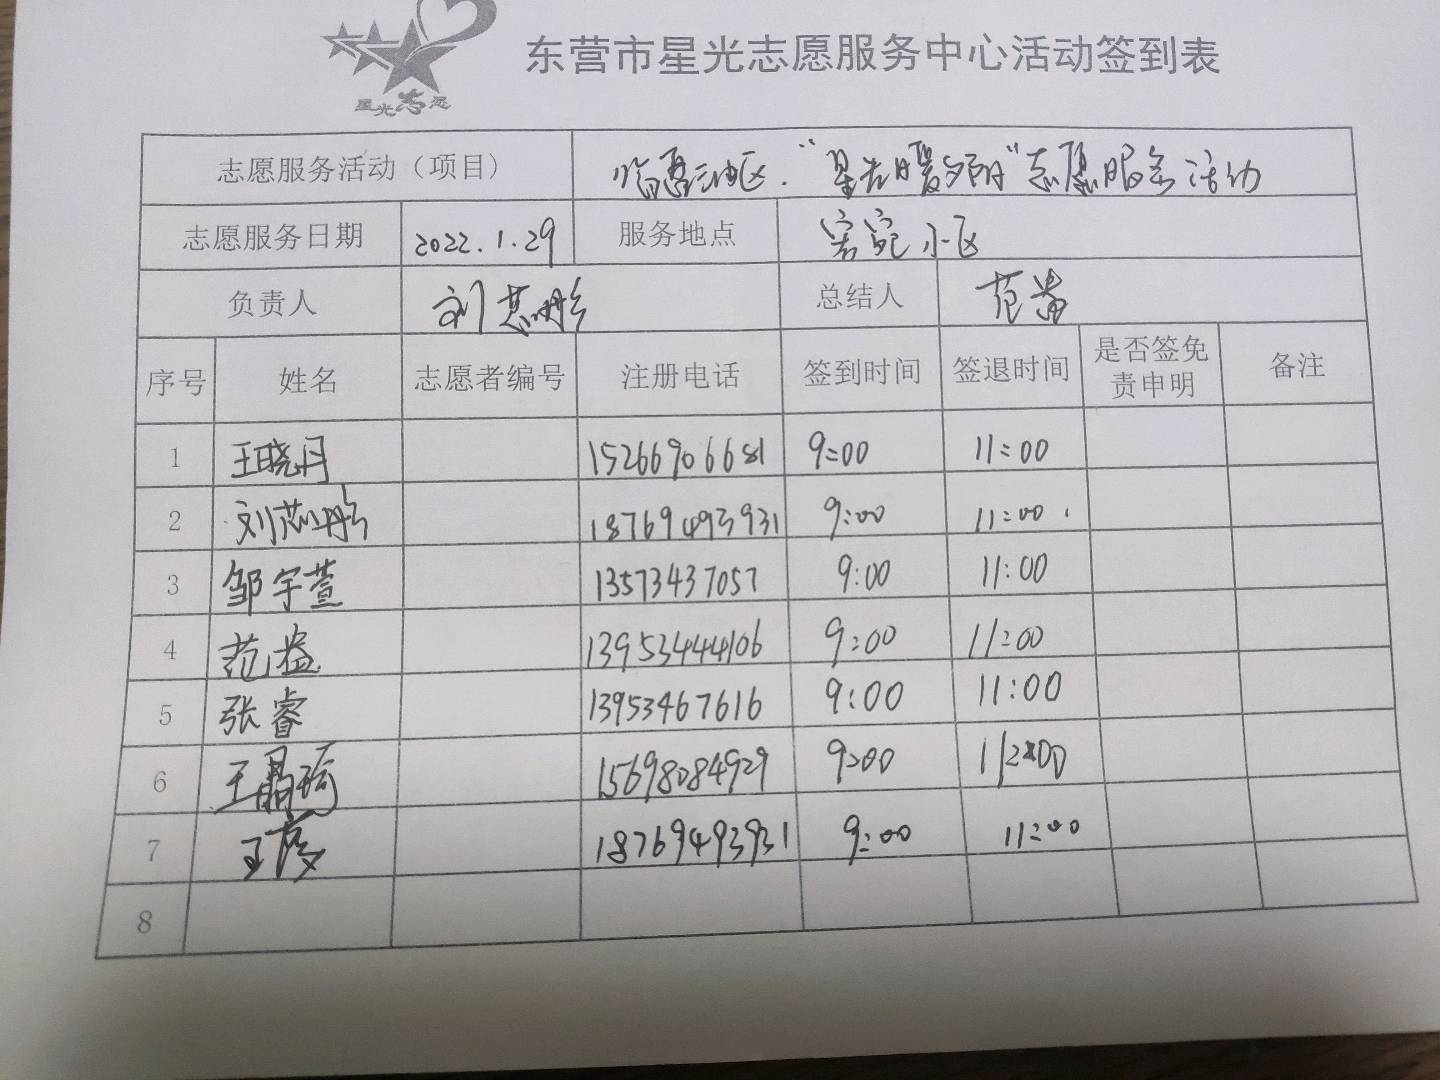 星光志愿
东营市星光志愿服务中心活动签到表
志愿服务活动（项目） "星光暖夕阳"志愿服务活动
志愿服务日期 2022.1.29 服务地点 小区
负责人 刘 总结人 范
序号 姓名 志愿者编号 注册电话 签到时间 签退时间 是否签免
责申明 备注
1 王晓丹 15266906681 9:00 11:00
2 刘 18769493931 9:00 11:00
3 邹宇萱 13573437057 9:00 11:00
4 范 13953444106 9:00 11:00
5 张睿 13953467616 9:00 11:00
6 王晶琦 15698084929 9:00 11:00
7 王 18769493931 9:00 11:00
8